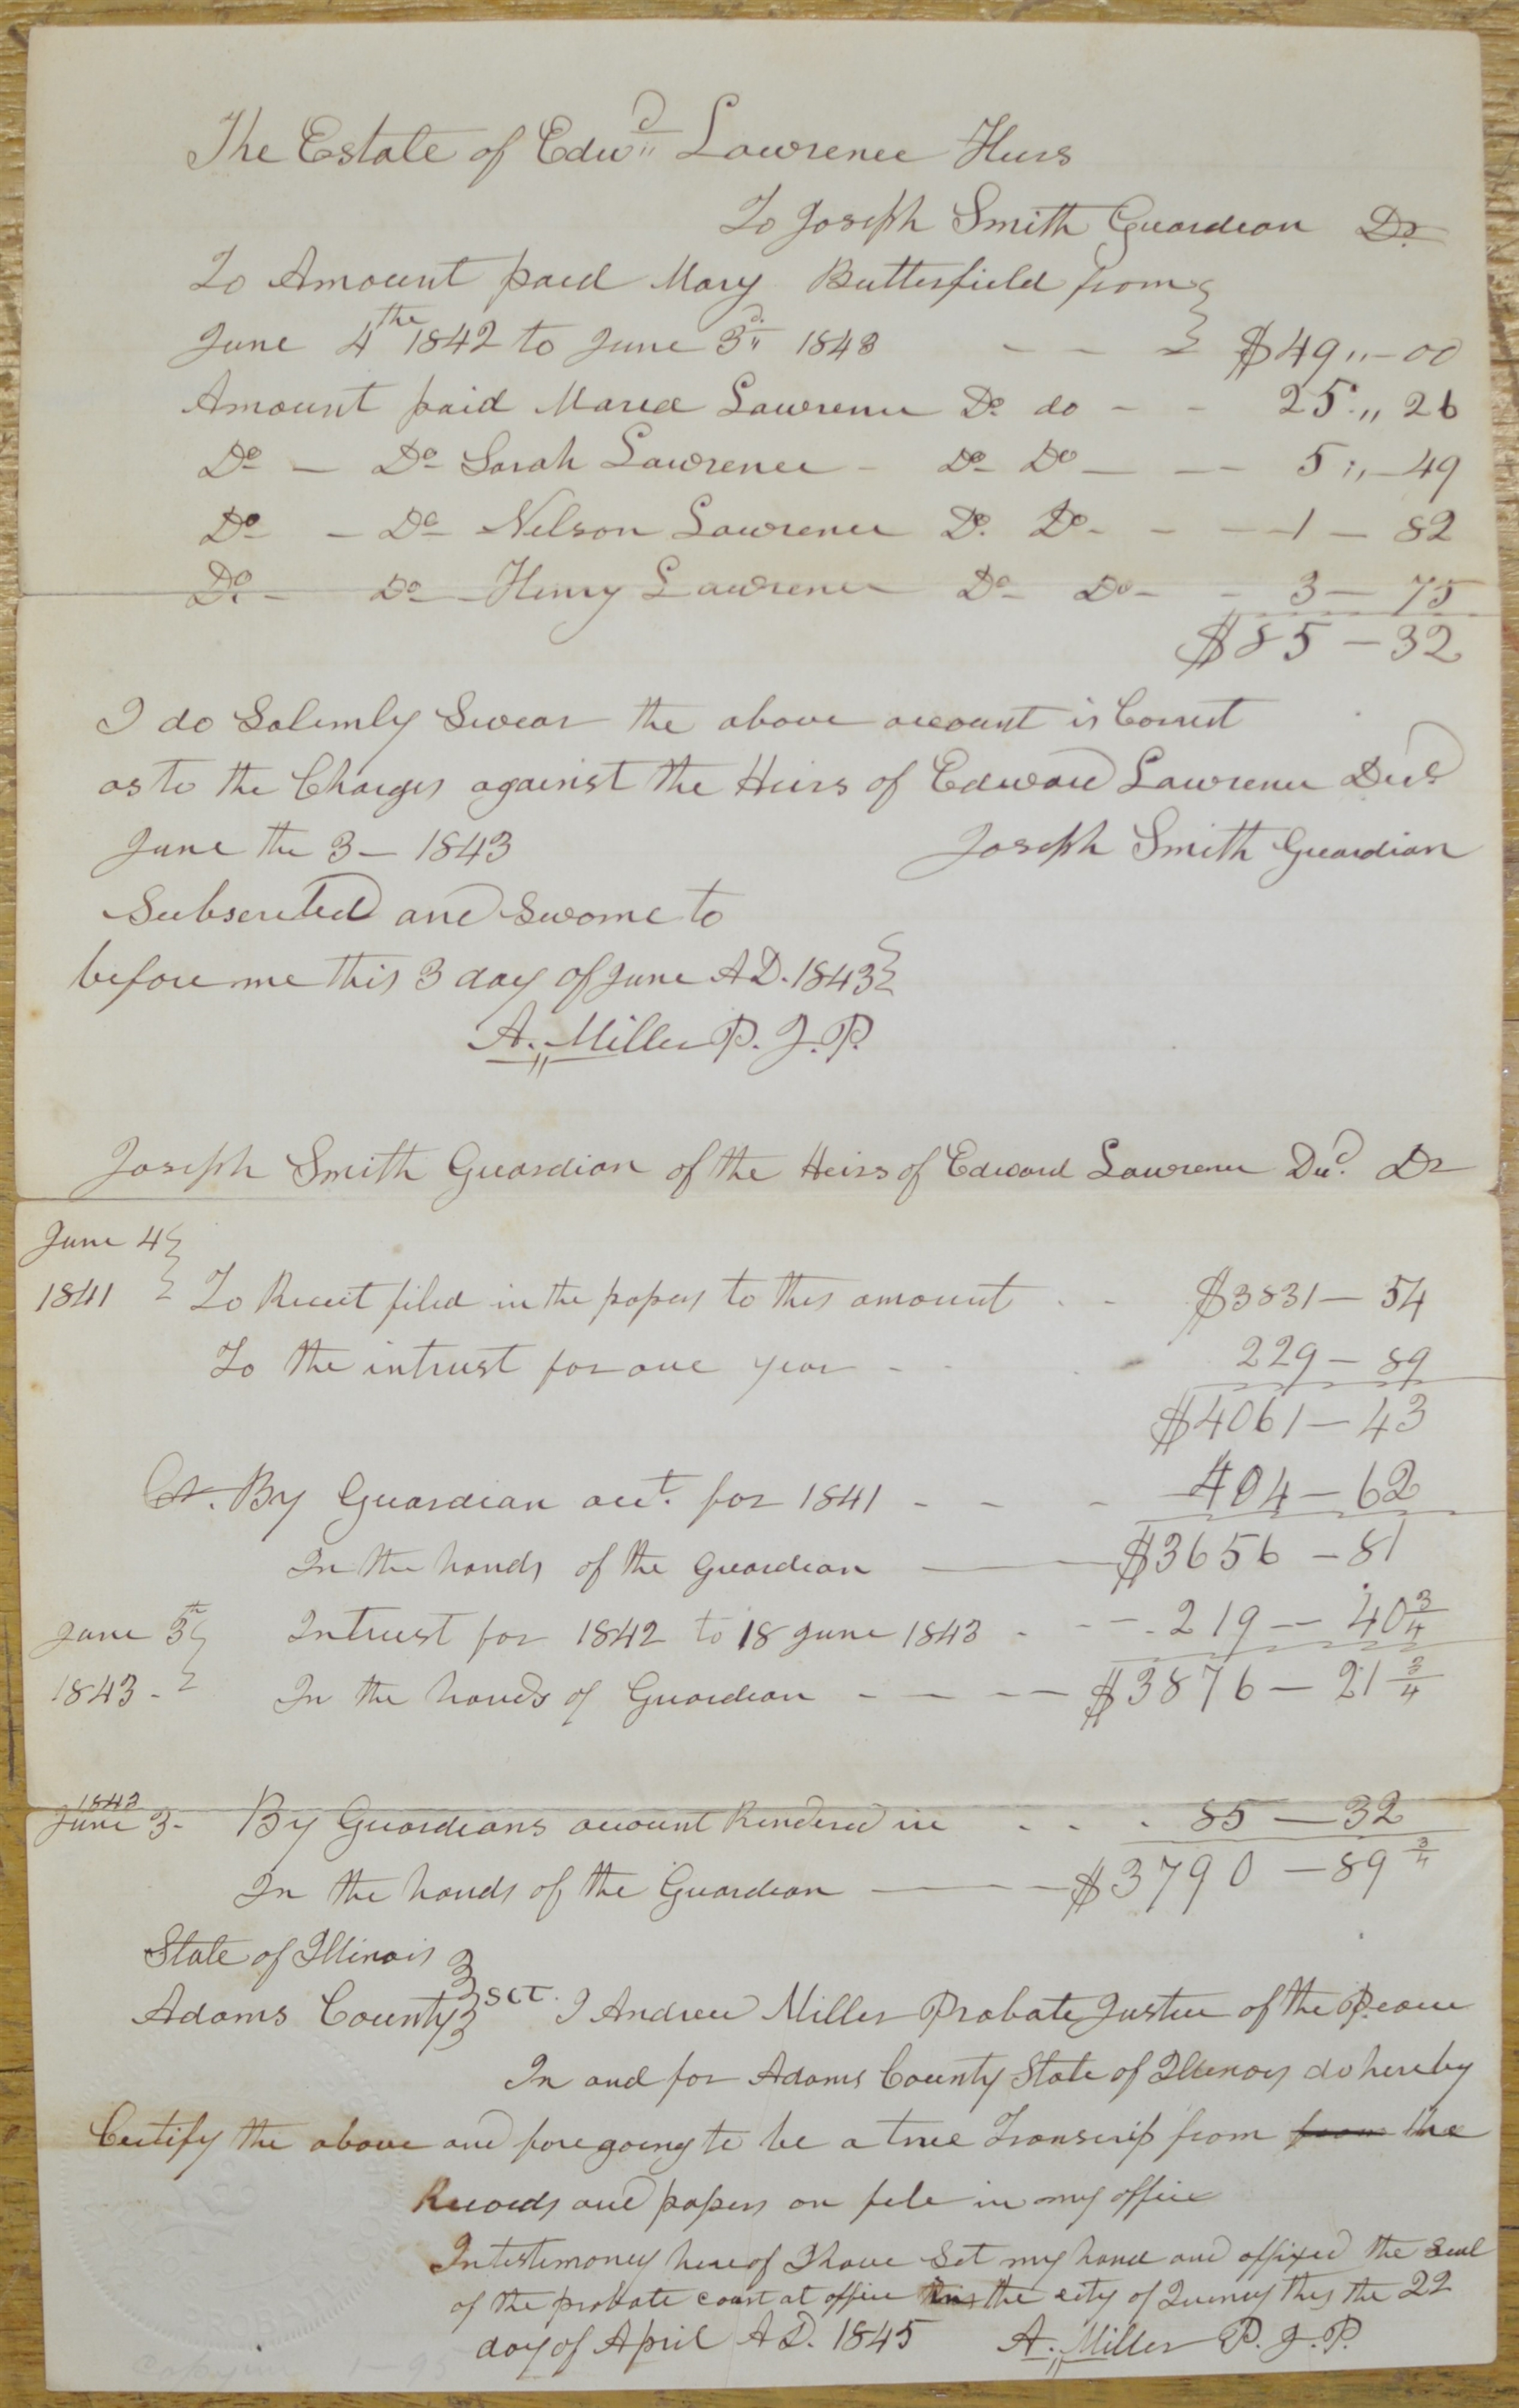 The Estate of Edwd Lawrence Heirs
To Joseph Smith Guardian Dr
To Amount paid Mary Butterfield from
June 4the 1842 to June 3d 1843 - - $49,,-00
Amount paid Maria Lawrence Do do - - 25,, 26
Do - Do Sarah Lawrence - Do Do - - 5,,-49
Do - Do Nelson Lawrence Do. Do - - - 1 - 82
Do. - Do - Henry Lawrence Do - Do - - 3 - 75
$85 - 32
I do Solemly Swear the above account is Correct
as to the Charges against the Heirs of Edward Lawrence Decd
June the 3 - 1843 Joseph Smith Guardian
Subscribed and Sworne to
before me this 3 day of June A D. 1843
A. Miller P. J. P.
Joseph Smith Guardian of the Heirs of Edward Lawrence Decd. Dr
June 4
1841 To Receit filed in the papers to this amount - - $3831 - 54
To the intrust for one year - - 229 - 89
$4061 - 43
Cr. By Guardian acct. for 1841 - - - 404 - 62
In the hands of the Guardian - $3656 - 81
June 3th Intrust for 1842 to 18 June 1843 - - - 219 - 40 3/4
1843 - In the hands of Guardian - - - - $3876 - 21 3/4
1843
June 3 - By Guardians account Rendered in - - - 85 - 32
In the hands of the Guardian - $3790 - 89 3/4
State of Illinois
Adams County SCT. I Andrew Miller Probate Justice of the Peace
In and for Adams County State of Illinois do hereby
Certify the above and foregoing to be a true Transcrip from from the
Records and papers on file in my office
In testimoney hereof I have Set my hand and affixed the Seal
of the probate court at office the city of Quincy this the 22
day of April A D. 1845 A. Miller P. J. P.